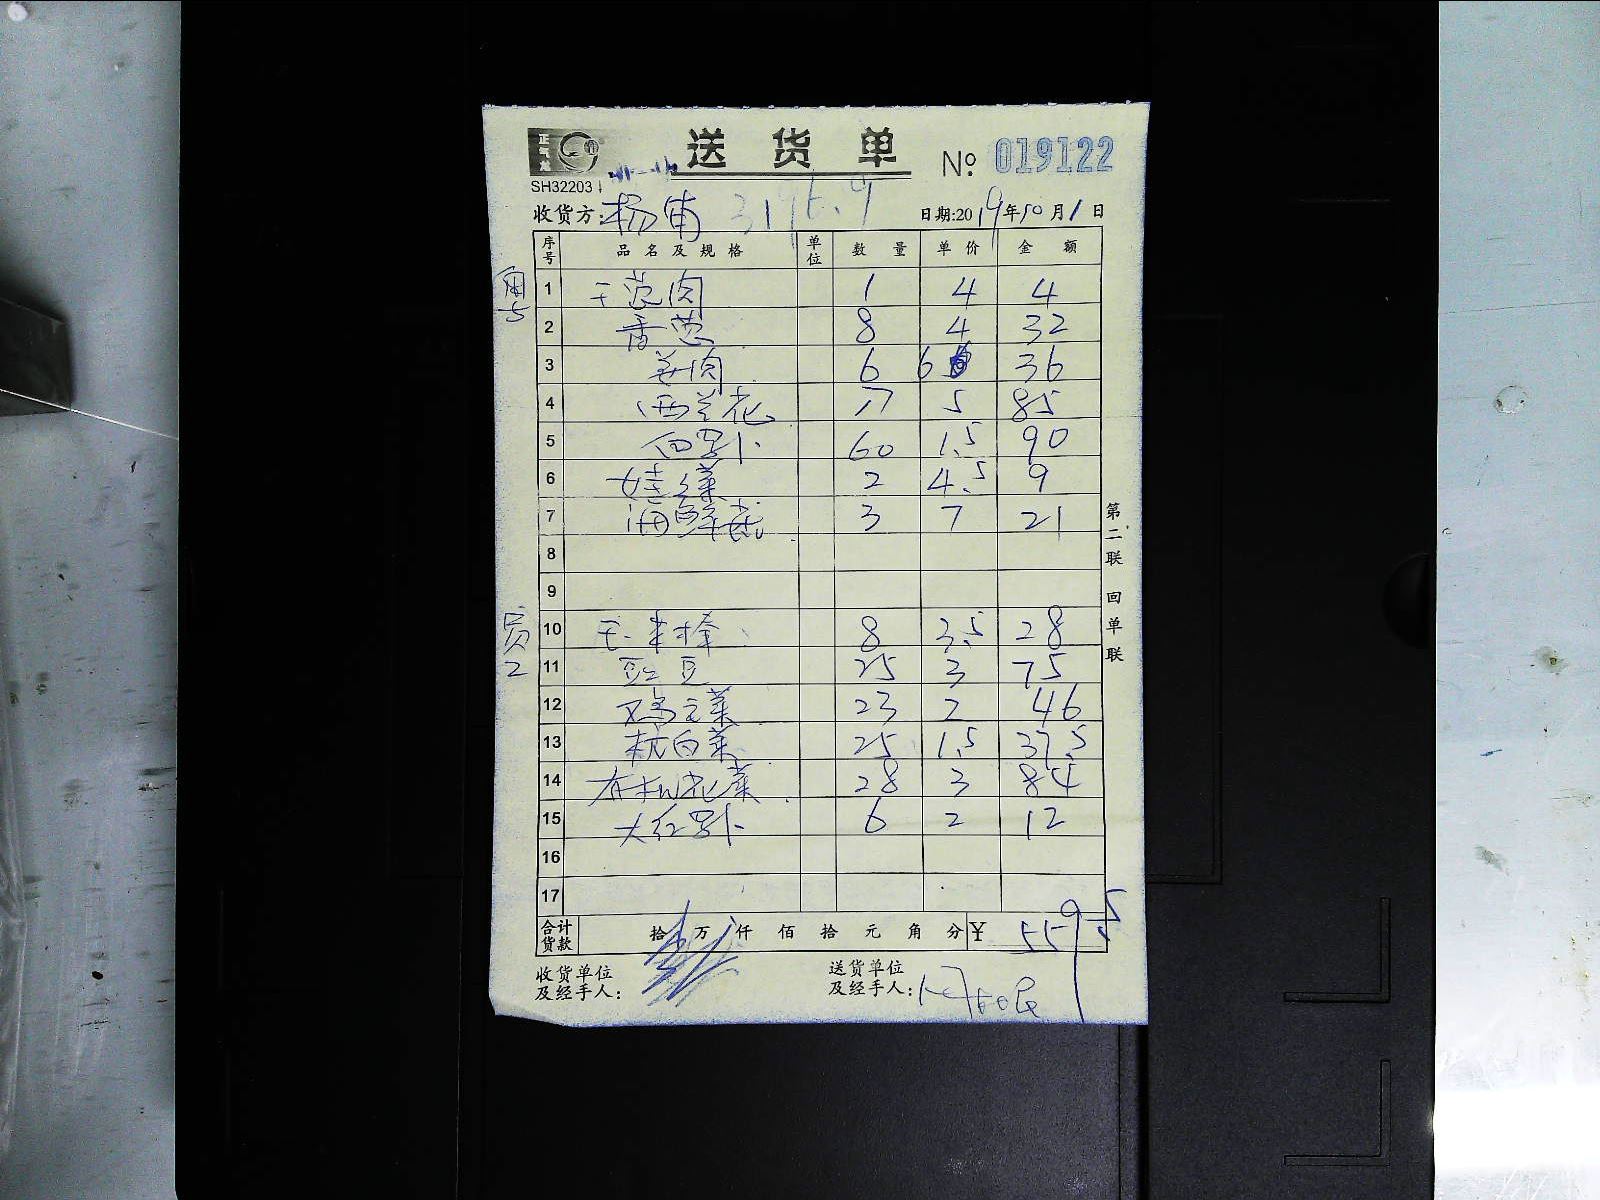 正气 送货单 № 019122
SH32203
收货方:杨浦 3196.9 日期:2019年10月1日
序号 品名及规格 单位 数量 单价 金额
1 干葱肉 1 4 4
2 香葱 8 4 32
3 姜肉 6 6 36
4 西兰花 17 5 85
5 白罗卜 60 1.5 90
6 娃娃菜 2 4.5 9
7 海鲜菇 3 7 21
8
9
10 8 3.5 28
11 豇豆 25 3 75
12 鸡毛菜 23 2 46
13 杭白菜 25 1.5 37.5
14 有机花菜 28 3 84
15 大红罗卜 6 2 12
16
17
合计货款 拾 万 仟 佰 拾 元 角 分 ¥ 559.5
收货单位及经手人:
送货单位及经手人:
第二联 回单联
员工